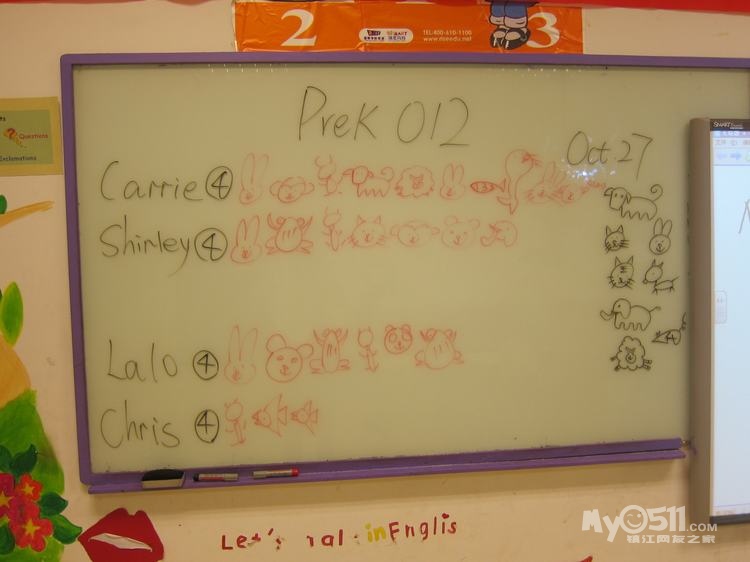 2 3
TEL:400-610-1100
www.riseedu.net
Questions
Exclamations
PreK 012
Oct. 27
SMART
文件
Carrie ④
Shirley ④
Lalo ④
Chris ④
Let's in Englis
My0511.COM
镇江网友之家